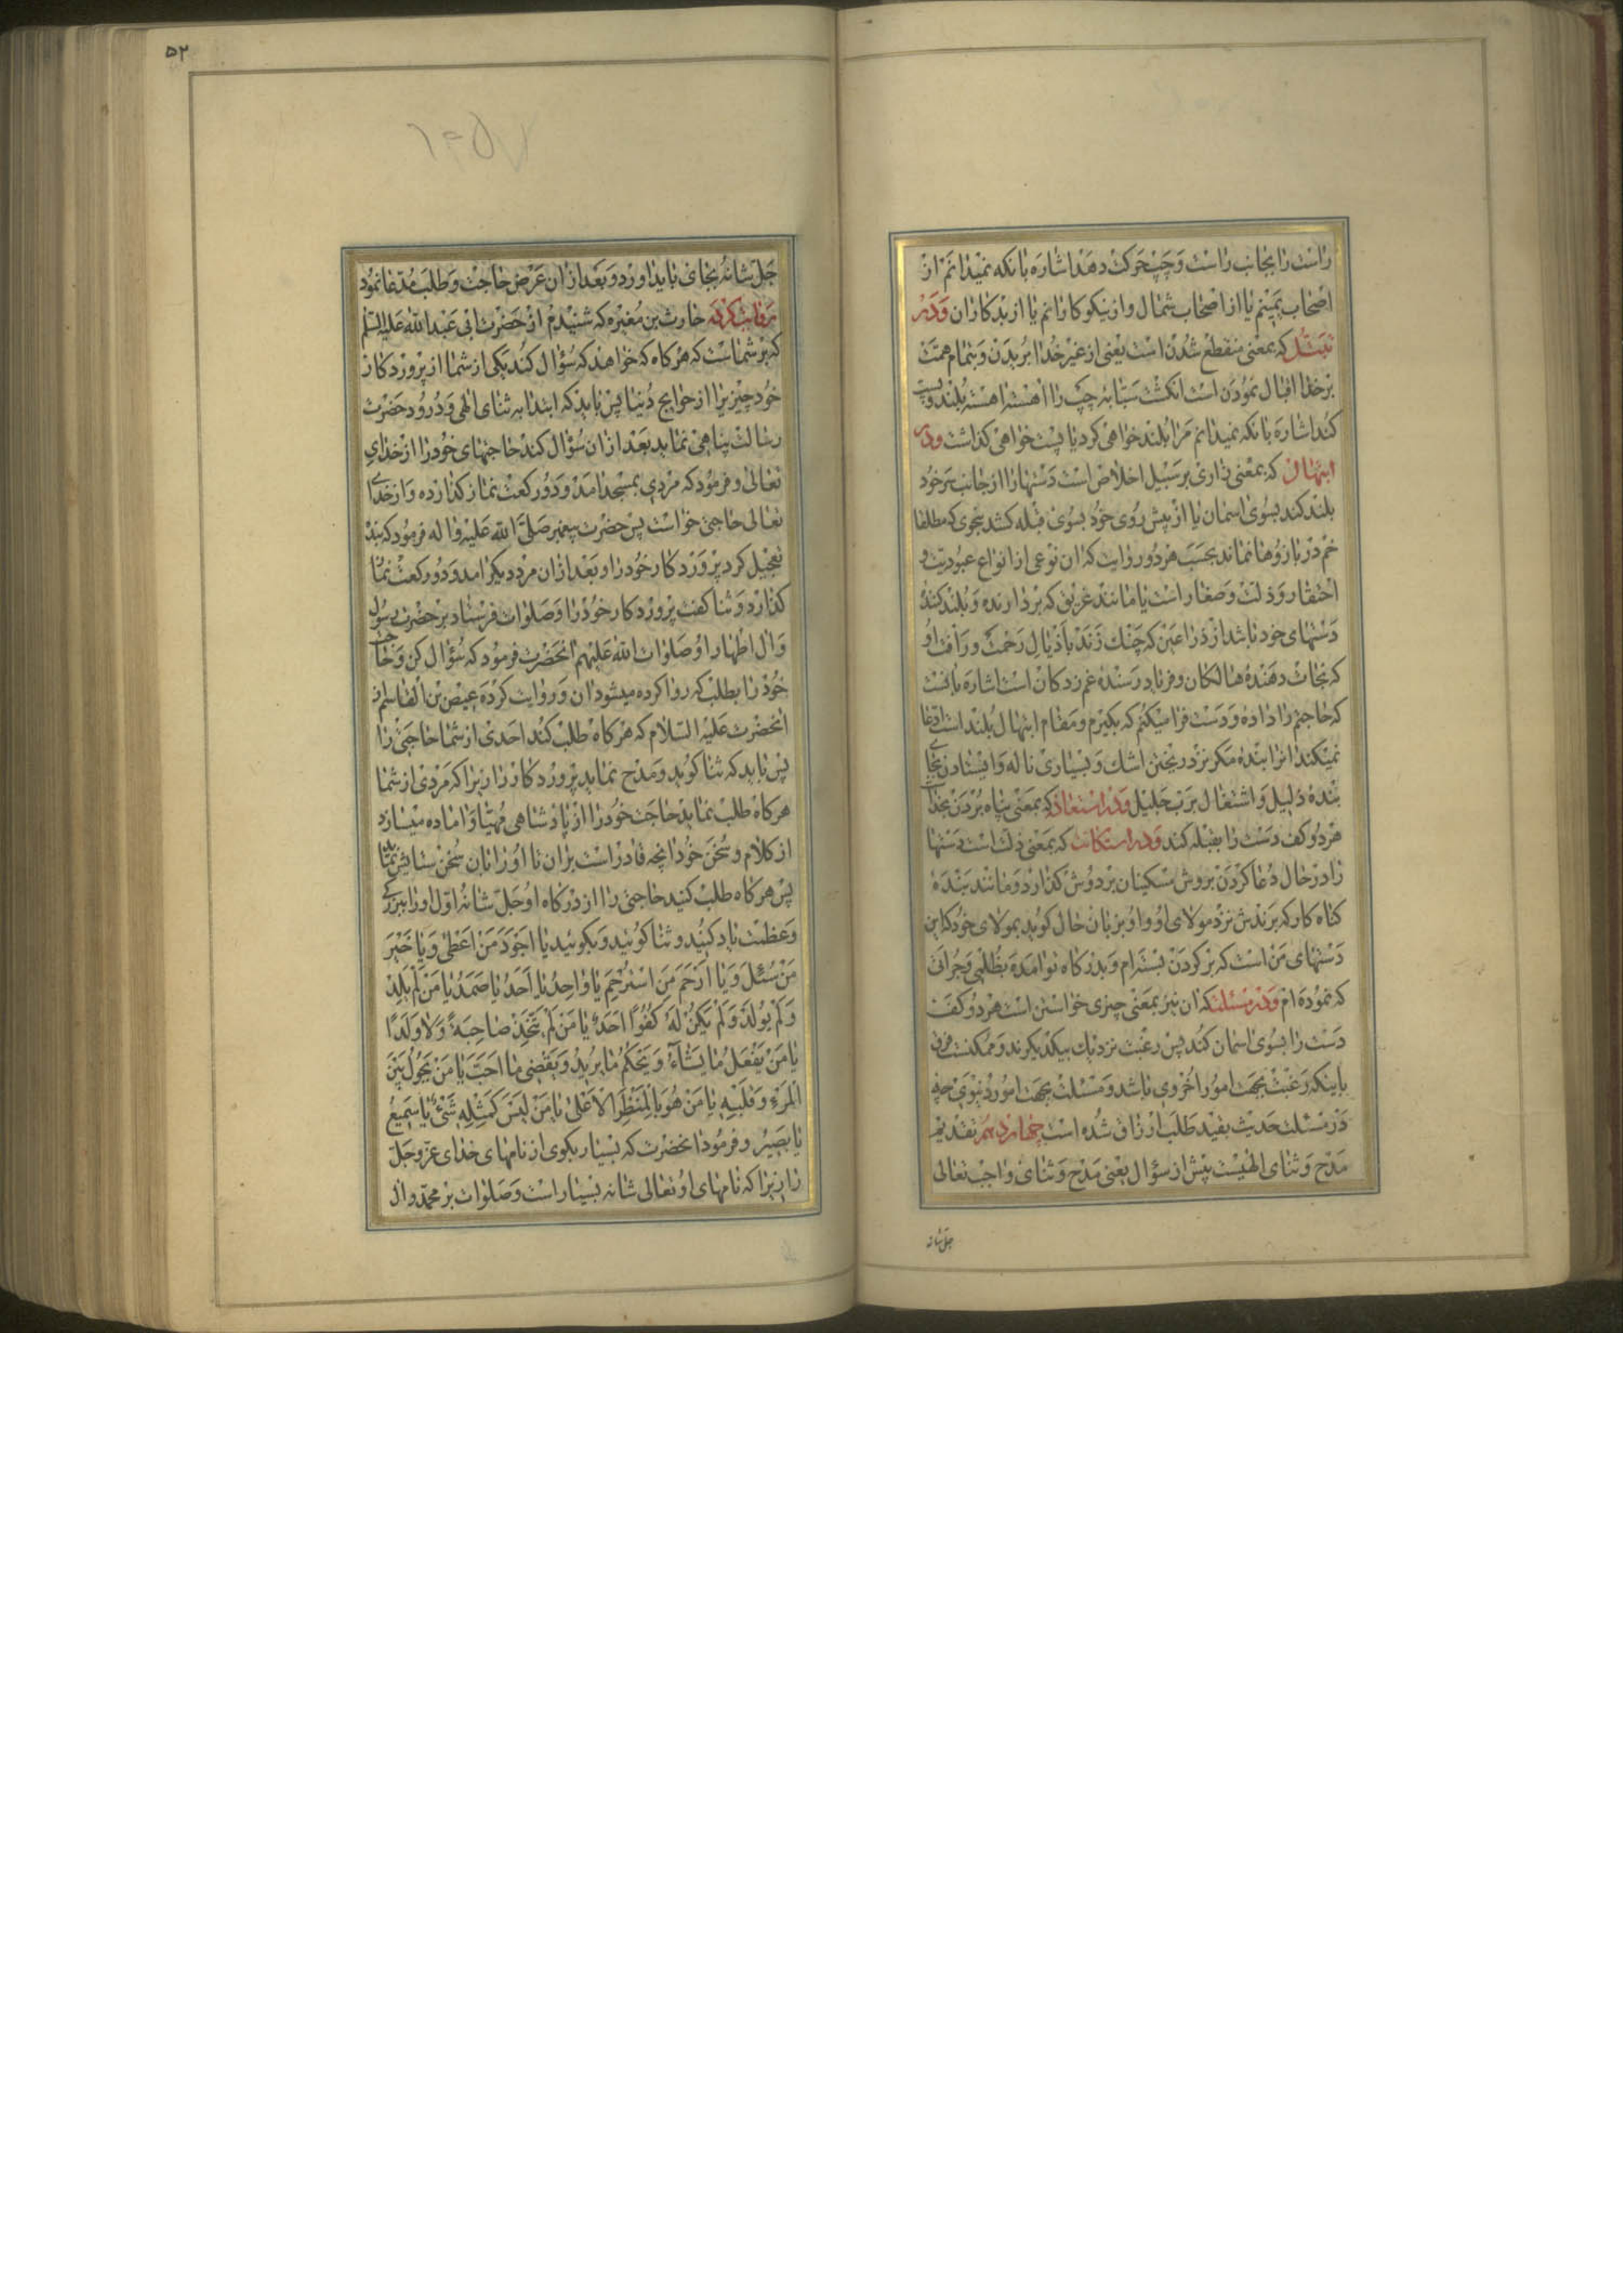 راست را بجانب راست و چپ حرکت دهد اشاره بانکه نمیدانم از
اصحاب یمینم یا از اصحاب شمال و از نیکوکارانم یا از بدکاران و در
تبتل که بمعنی منقطع شدن است یعنی از غیر خدا بریدن و بتمام همت
برخدا اقبال نمودن است انکشت سبابه چپ را اهسته اهسته بلند و پست
کند اشاره بانکه نمیدانم مرا بلند خواهی کرد یا پست خواهی کذاشت و در
ابتهال که بمعنی زاری بر سبیل اخلاص است دستها را از جانب سر خود
بلند کند بسوی اسمان یا از پیش روی خود بسوی قبله کشد بنحوی که مطلقا
خم در بازوها نماند بحسب هر دو روایت که ان نوعی از انواع عبودیت و
احتقار و ذلت و صغار است یا مانند غریق که بردارنده و بلند کننده
دستهای خود باشد از ذراعین که چنک زند باذیال رحمت و رافت او
که نجات دهنده هالکان و فریاد رسنده غم زدکان است اشاره بانست
که حاجتم را داده و دست فرا میکنم که بکیرم و مقام ابتهال بلند است ادعا
نمیکند انرا بنده مکر نزد ریختن اشک و بسیاری ناله و ایستادن بجای
بنده ذلیل و اشتغال برب جلیل و در استعاذه که بمعنی پناه بردن بخداست
هر دو کف دست را بقبله کند و در استکانت که بمعنی ذلت است دستها
را در حال دعا کردن بروش مسکینان بر دوش کذارد و مانند بنده
کناه کار که برندش نزد مولای او و او بزبان حال کوید بمولای خود که این
دستهای من است که بر کردن بسته‌ام و بدرکاه تو امده بظلمی و جراتی
که نموده ام و در مسئلت که ان نیز بمعنی چیزی خواستن است هر دو کف
دست را بسوی اسمان کند پس رغبت نزدیک بیکدیکرند و ممکنست فرق
باینکه رغبت بجهت امور اخروی باشد و مسئلت بجهت امور دنیوی چه
در مسئلت حدیث بقید طلب ارزاق شده است چهاردهم تقدیم
مدح و ثنای الهیست پیش از سؤال یعنی مدح و ثنای واجب تعالی
جل شانه
۵۲
جل شانه بجای باید اورد و بعد از ان عرض حاجت و طلب مدعا نمود
روایت کرده حارث بن مغیره که شنیدم از حضرت ابی عبدالله علیه السلم
که بر شماست که هرکاه که خواهند که سؤال کند یکی از شما از پروردکار
خود چیزیرا از حوایج دنیا پس باید که ابتدا به ثنای الهی و درود حضرت
رسالت پناهی نماید بعد از ان سؤال کند حاجتهای خود را از خدای
تعالی و فرمود که مردی بمسجد امد و دو رکعت نماز کذارده و از خدا
تعالی حاجتی خواست پس حضرت پیغمبر صلی الله علیه واله فرمود که بنده
تعجیل کرد پروردکار خود را و بعد از ان مرد دیکر امد و دو رکعت نماز
کذارد و ثنا کفت پروردکار خود را و صلوات فرستاد بر حضرت رسول
و ال اطهار او صلوات الله علیهم انحضرت فرمود که سؤال کن و حاجت
خود را بطلب که روا کرده میشود ان و روایت کرده عیص بن القاسم از
انحضرت علیه السلام که هرکاه طلب کند احدی از شما حاجتی را
پس باید که ثنا کوید و مدح نماید پروردکار را زیرا که مردی از شما
هرکاه طلب نماید حاجت خود را از پادشاهی مهیا و اماده میسازد
از کلام و سخن خود انچه قادر است بران تا او را بان سخن ستایش نماید
پس هرکاه طلب کنید حاجتی را از درکاه او جل شانه اول او را ببزرکی
و عظمت یاد کنید و ثنا کوئید و بکوئید یا اجود من اعطی و یا خیر
من سئل و یا ارحم من استرحم یا واحد یا احد یا صمد یا من لم یلد
و لم یولد و لم یکن له کفوا احد یا من لم یتخذ صاحبة و لا ولدا
یا من یفعل ما یشاء و یحکم ما یرید و یقضی ما احب یا من یحول بین
المرء و قلبه یا من هو بالمنظر الاعلی یا من لیس کمثله شیء یا سمیع
یا بصیر و فرمود انحضرت که بسیار بکوی از نامهای خدای عز و جل
را زیرا که نامهای او تعالی شانه بسیار است و صلوات بر محمد و ال